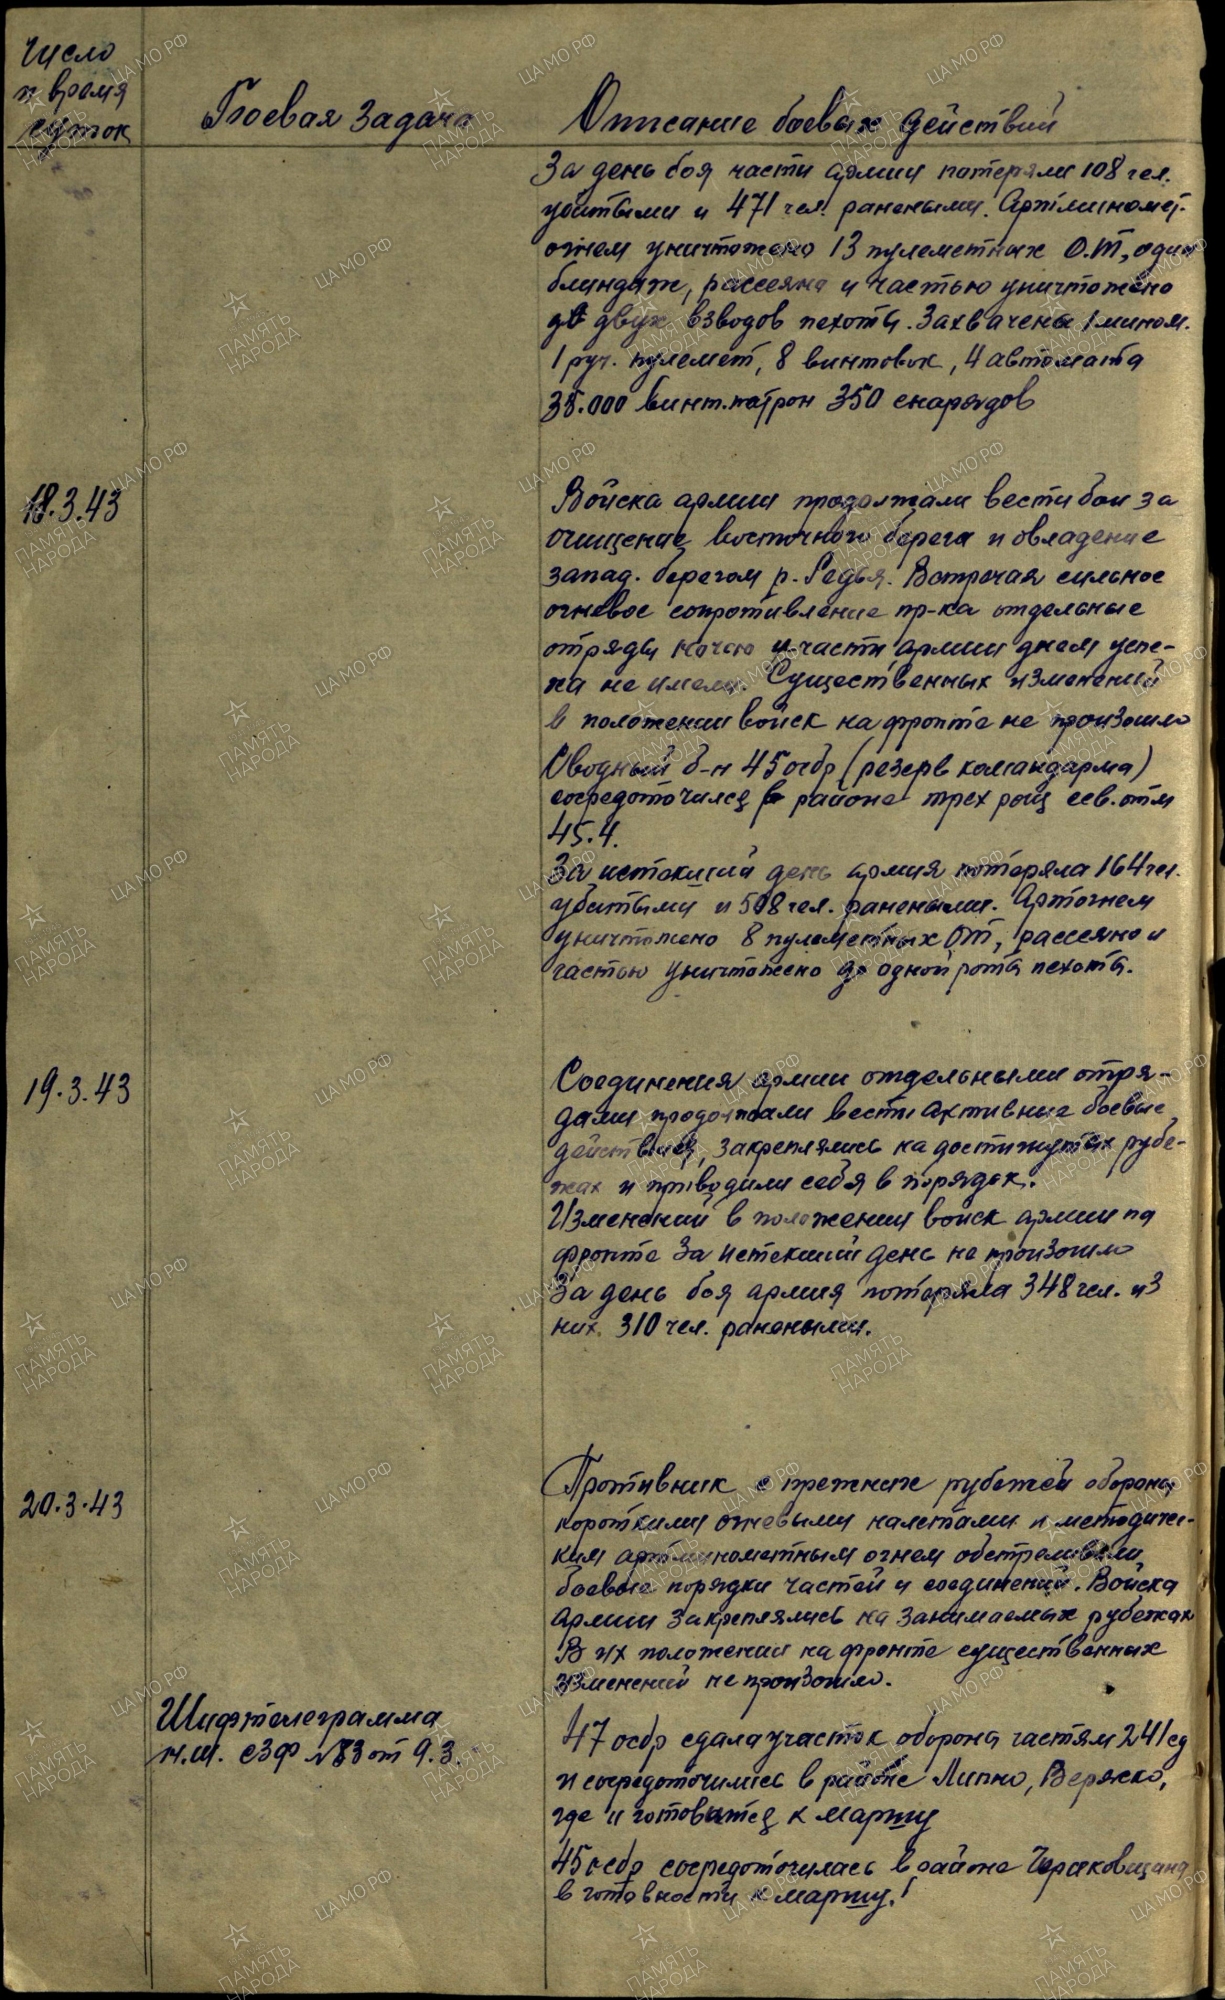 Число
и время
суток
Боевая Задача
Описание боевых действий
За день боя части армии потеряли 108 чел.
убитыми и 471 чел. ранеными. Артминомет.
огнем уничтожено 13 пулеметных О.Т., один
блиндаж, рассеяно и частью уничтожено
до двух взводов пехоты. Захвачены 1 мином.
1 руч. пулемет, 8 винтовок, 4 автомата
35.000 винт.патрон 350 снарядов
18.3.43
Войска армии продолжали вести бои за
очищение восточного берега и овладение
запад. берегом р. Редья. Встречая сильное
огневое сопротивление пр-ка отдельные
отряды ночью и части армии днем успе-
ха не имели. Существенных изменений
в положении войск на фронте не произошло
Сводный б-н 45 осбр (резерв командарма)
сосредоточился в районе трех рощ сев. отм
45.4.
За истекший день армия потеряла 164 чел.
убитыми и 508 чел. ранеными. Артогнем
уничтожено 8 пулеметных ОТ, рассеяно и
частью уничтожено до одной роты пехоты.
19.3.43
Соединения армии отдельными отря-
дами продолжали вести активные боевые
действия, закреплялись на достигнутых рубе-
жах и приводили себя в порядок.
Изменений в положении войск армии на
фронте за истекший день не произошло
За день боя армия потеряла 348 чел. из
них 310 чел. ранеными.
20.3.43
Противник с прежних рубежей обороны
короткими огневыми налетами и методичес-
ким артминометным огнем обстреливали
боевые порядки частей и соединений. Войска
армии закреплялись на занимаемых рубежах
В их положении на фронте существенных
изменений не произошло.
Шифтелеграмма
н.ш. СЗФ №83 от 9.3.
47 осбр сдала участок обороны частям 241 сд
и сосредоточились в районе Липно, Веряско,
где и готовится к маршу
45 осбр сосредоточилась в районе
в готовности к маршу.